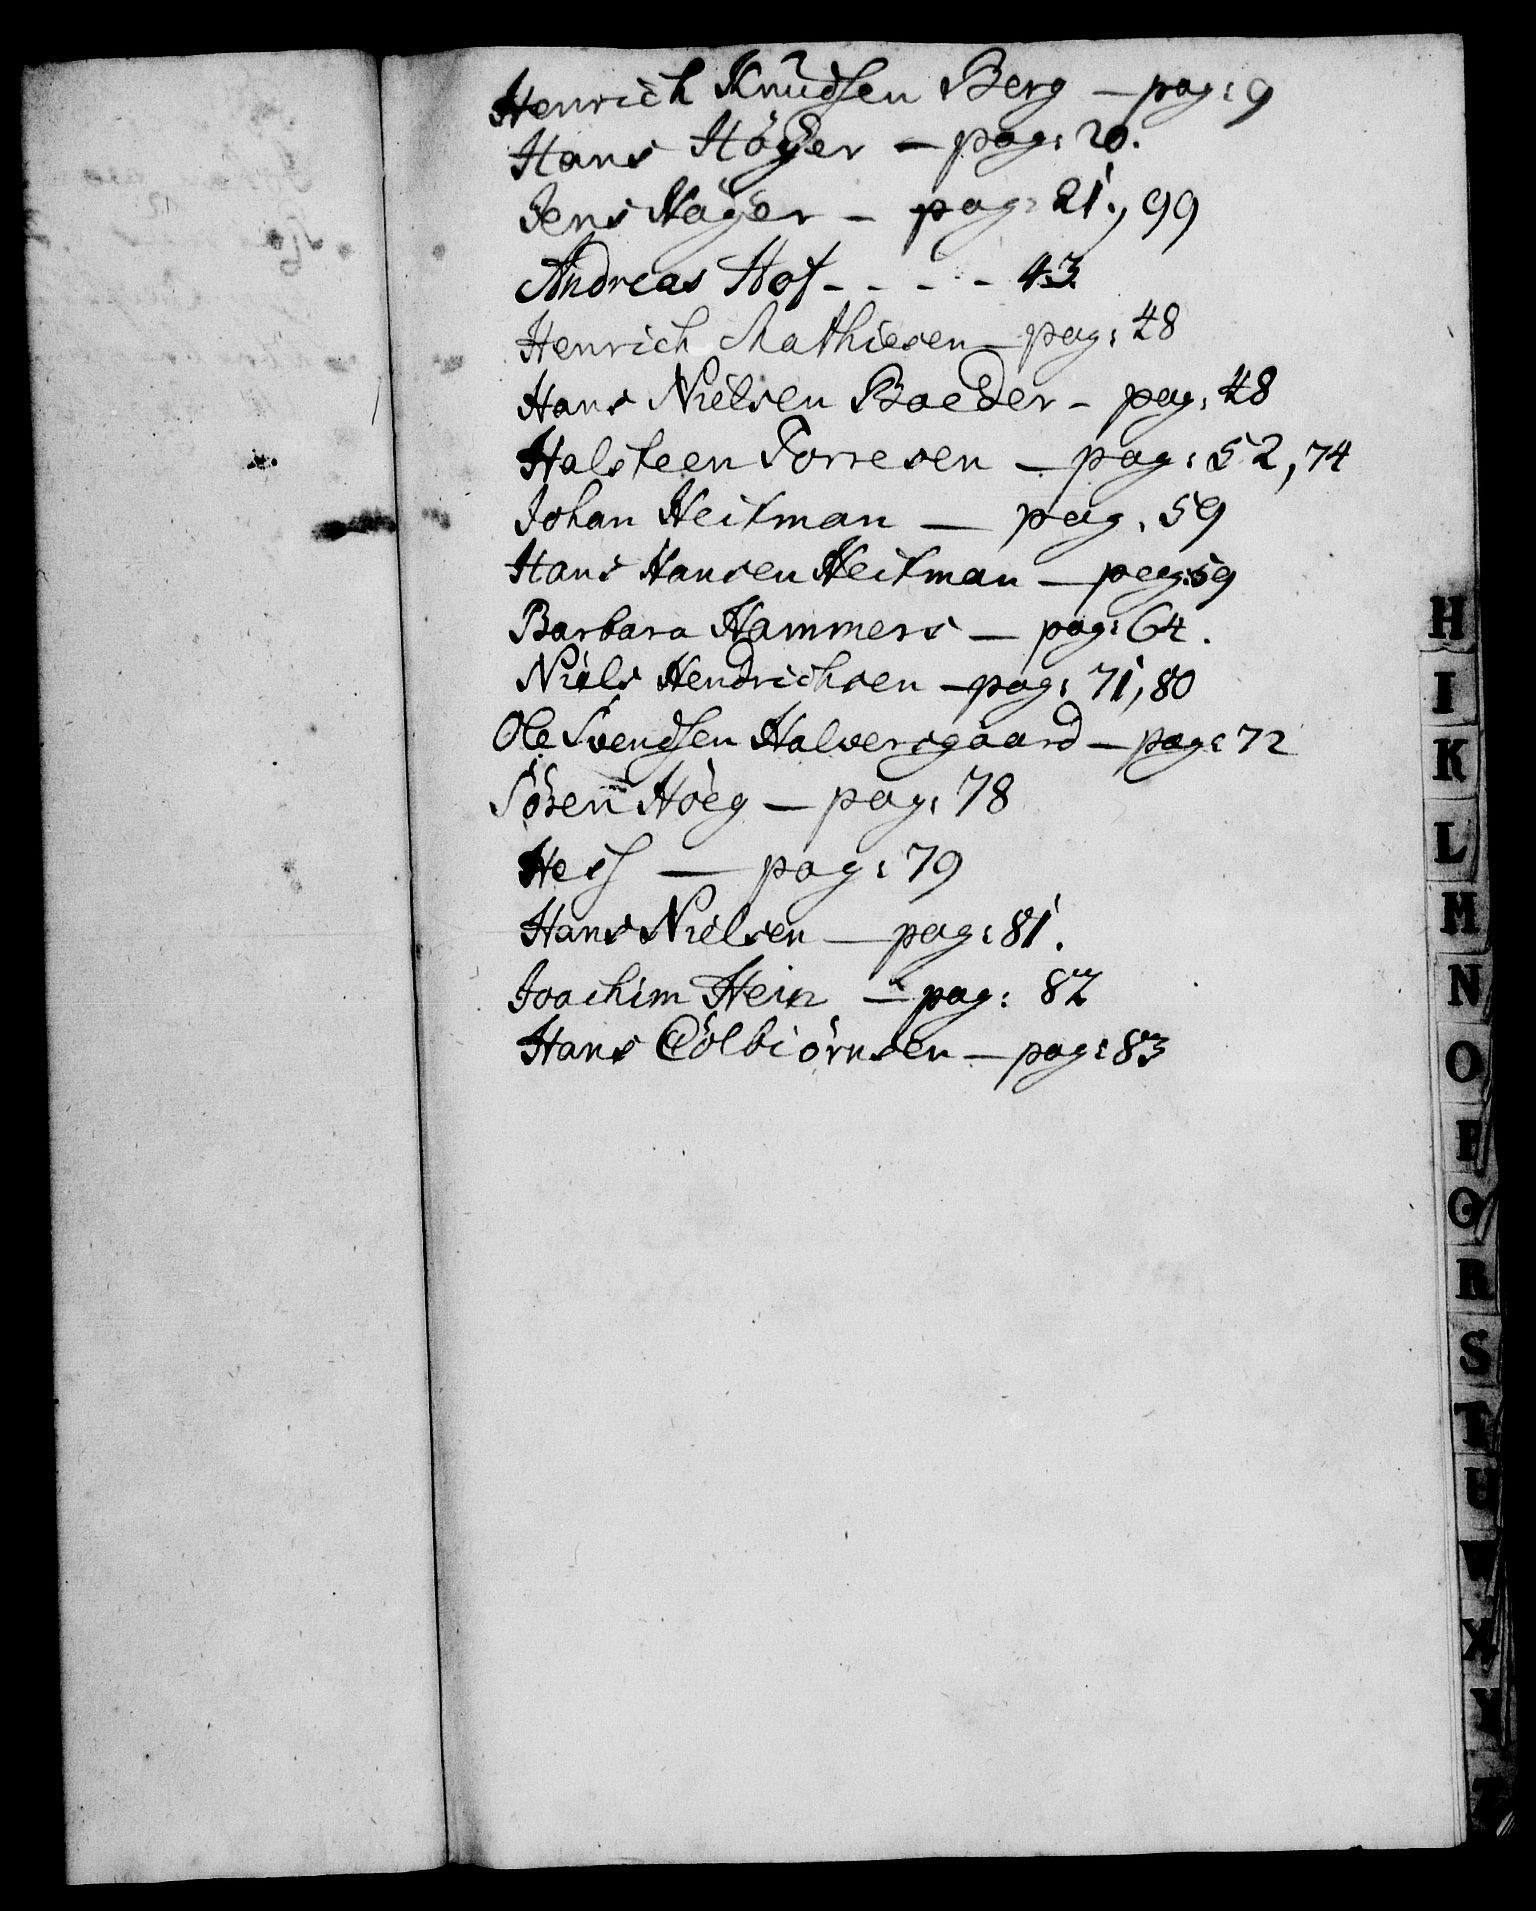 Henrich Knudsen Berg – pag: 9
Hans Höÿer – pag: 20.
Jens Häÿer – pag: 21., 99
Andreas Hof - - - - 43.
Henrich Mathiesen – pag: 48
Hans Nielsen Boeder – pag: 48
Halsteen Torresen – pag: 52, 74
Johan Heitman – pag. 59
Hans Hansen Heitman – pag: 59
Barbara Hammers – pag: 64.
Niels Hendrichsen – pag: 71, 80
Ole Svendsen Halversgaard – pag: 72
Sören Höeg – pag: 78
Hess – pag: 79
Hans Nielsen – pag: 81.
Joachim Hein – pag: 82
Hans Cölbiörnsen – pag: 83
H
I
K
L
M
N
O
P
Q
R
S
T
U
W
X
Y
Z